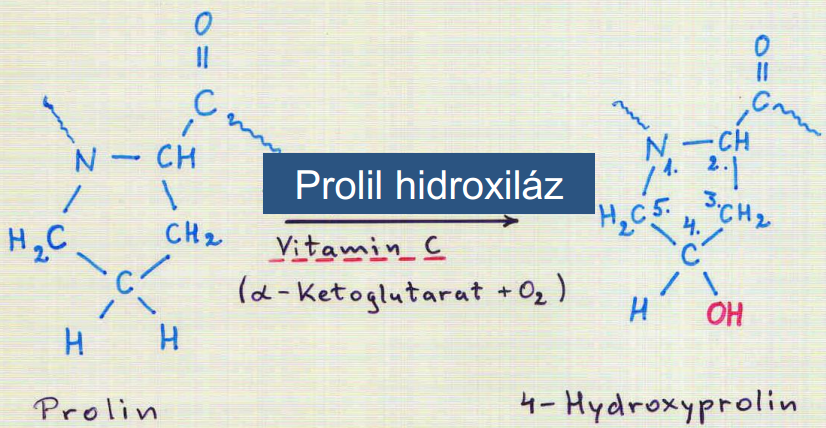 O
||
C
N — CH
H₂C
CH₂
C
H
H
Prolin
Prolil hidroxiláz
Vitamin C
(α-Ketoglutarat + O₂)
O
||
C
N — CH
1.
2.
H₂C 5.
3. CH₂
4.
C
H
OH
4-Hydroxyprolin